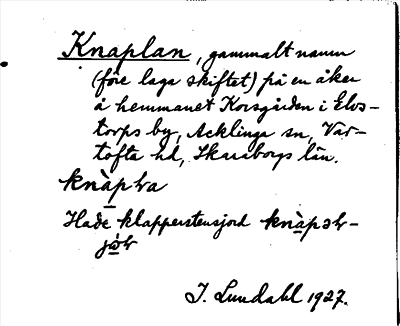 Knaplan, gammalt namn
(före laga skiftet) på en åker
å hemmanet Korsgården i Elvs-
torps by, Acklinga sn, Var-
tofta hd, Skaraborgs län.
knàpɫra
Hade klapperstensjord knàpəɫr-
jóɫr
I. Lundahl 1927.